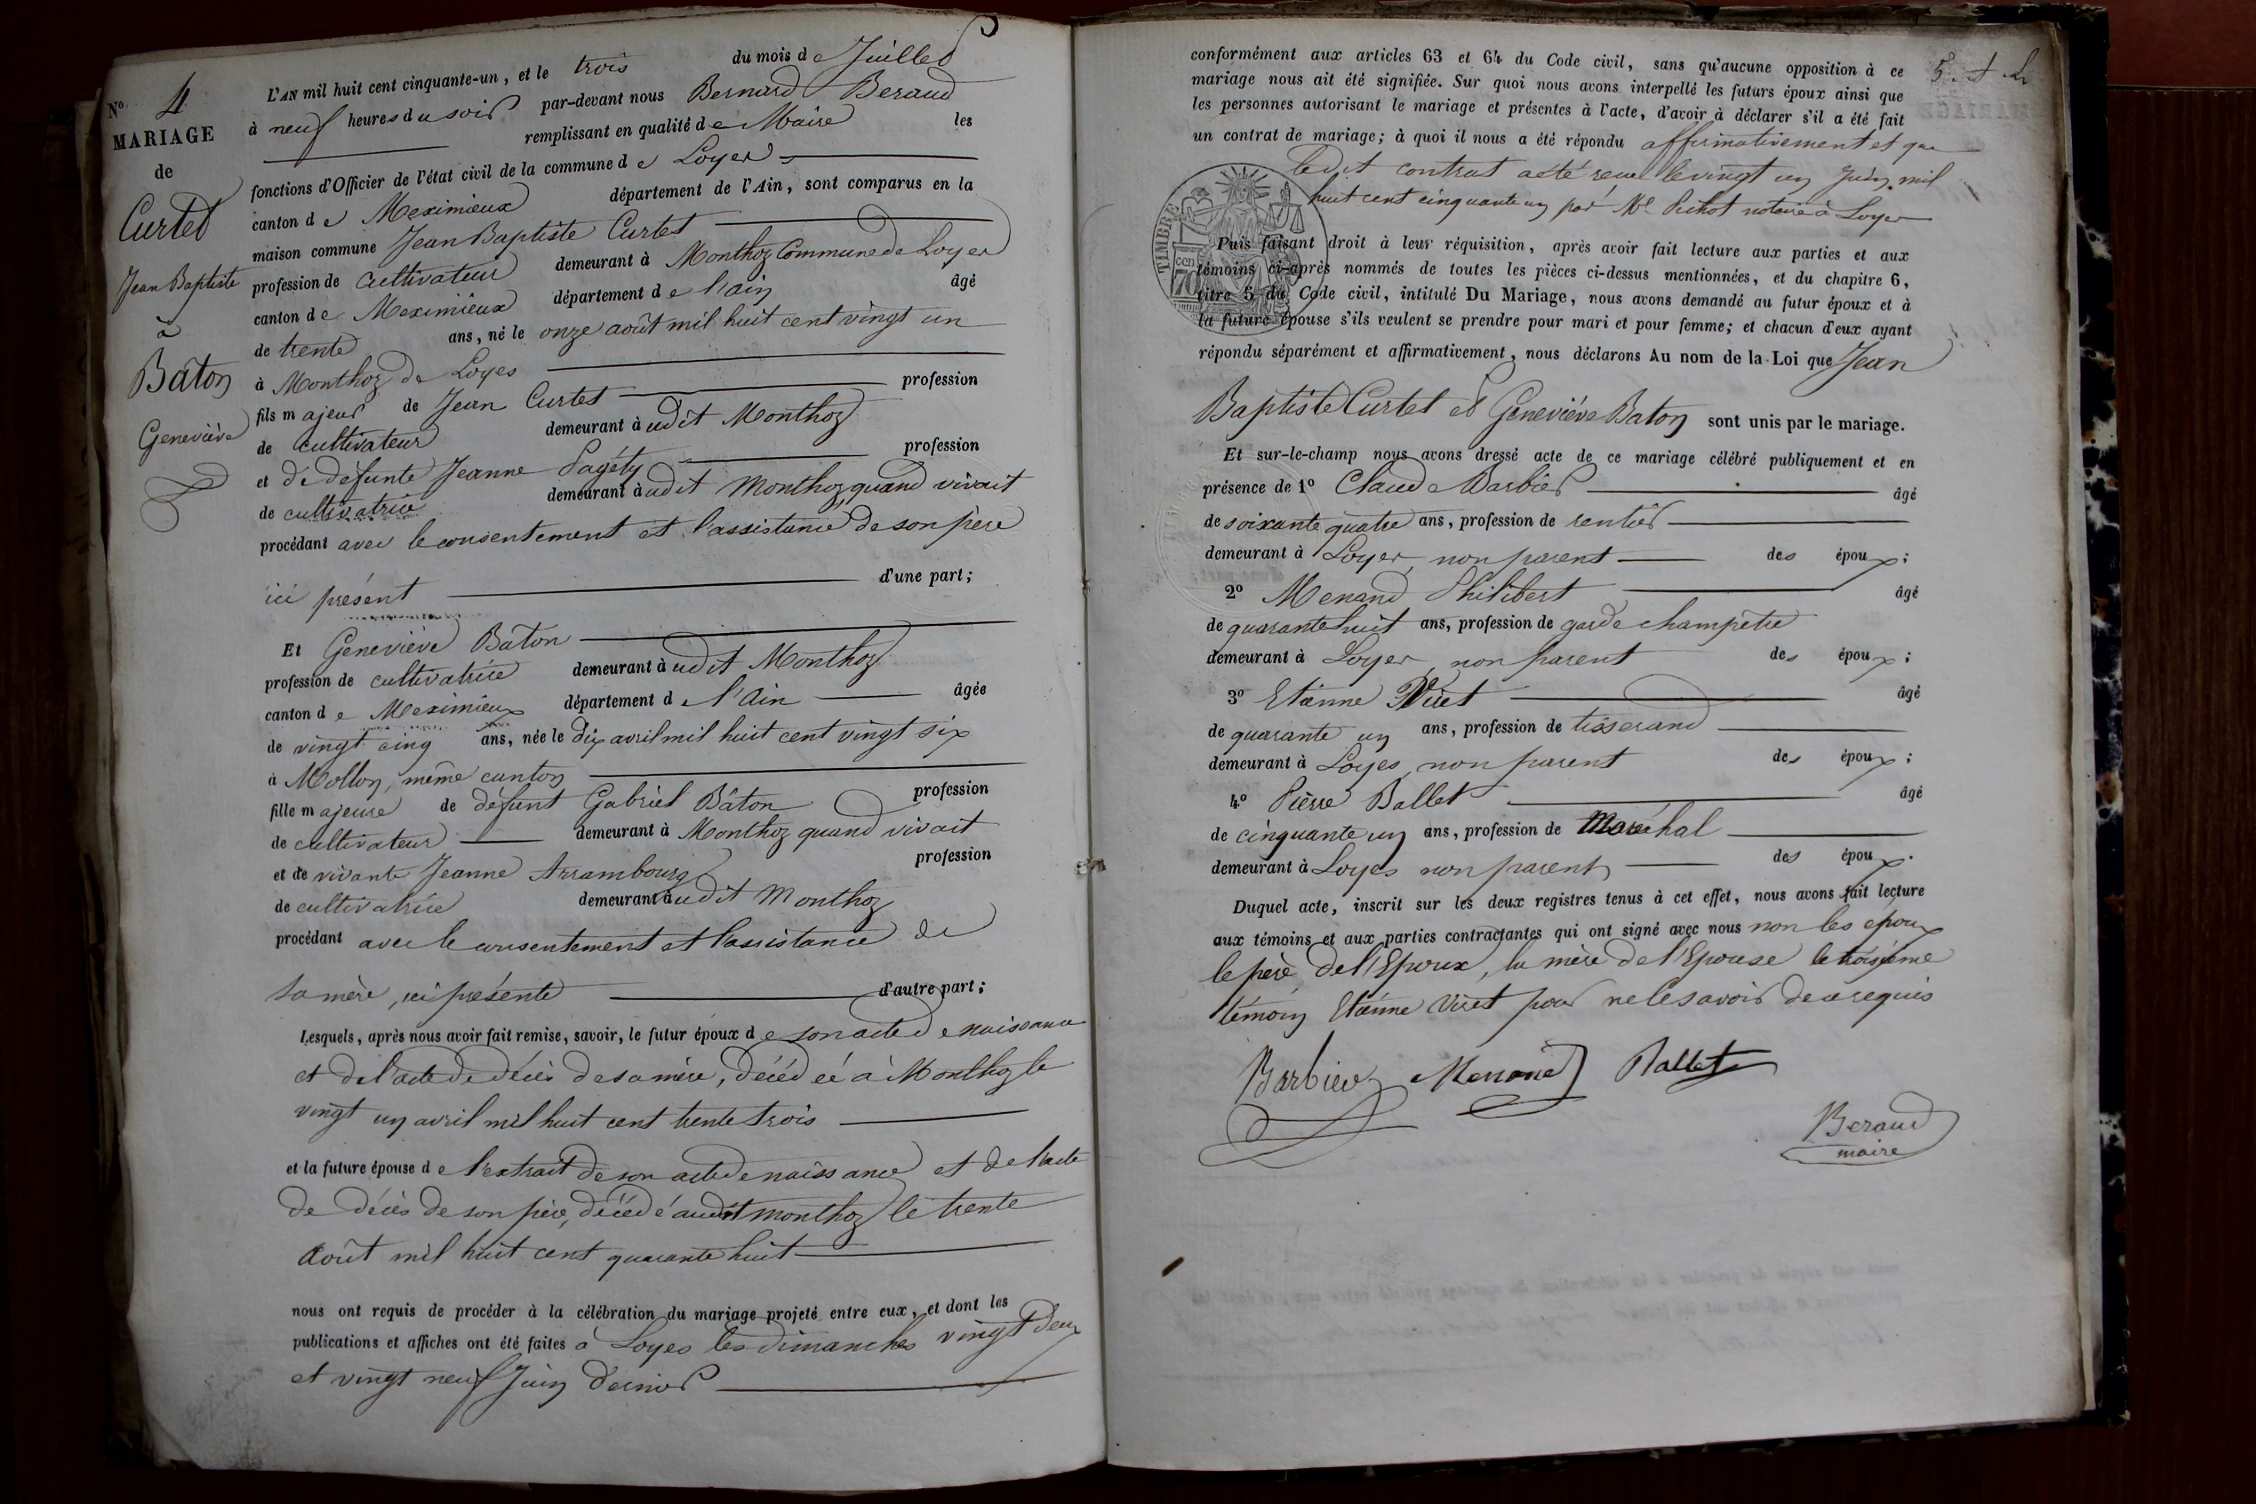 N° 4
MARIAGE
de
Curtet
Jean Baptiste
à
Bâton
Geneviève
L'AN mil huit cent cinquante-un, et le trois du mois de Juillet
à neuf heures du soir par-devant nous Bernard Beraud
remplissant en qualité de Maire les
fonctions d'Officier de l'état civil de la commune de Loyes
canton de Meximieux département de l'Ain, sont comparus en la
maison commune Jean Baptiste Curtet
profession de cultivateur demeurant à Monthoz Commune de Loyes
canton de Meximieux département de l'ain âgé
de trente ans, né le onze août mil huit cent vingt un
à Monthoz de Loyes
fils majeur de Jean Curtet profession
de cultivateur demeurant à udit Monthoz
et de defunte Jeanne Pagéty profession
de cultivatrice demeurant à udit Monthoz, quand vivait
procédant avec le consentement et l'assistance de son père
ici présent d'une part;
Et Geneviève Bâton
profession de cultivatrice demeurant à udit Monthoz
canton de Meximieux département de l'Ain âgée
de vingt cinq ans, née le dix avril mil huit cent vingt six
à Mollon, même canton
fille majeure de défunt Gabriel Bâton profession
de cultivateur demeurant à Monthoz quand vivait
et de vivante Jeanne Arrambourg profession
de cultivatrice demeurant à udit Monthoz
procédant avec le consentement et l'assistance de
sa mère, ici présente d'autre part;
Lesquels, après nous avoir fait remise, savoir, le futur époux de son acte de naissance
et de l'acte de décès de sa mère, décédée à Monthoz le
vingt un avril mil huit cent trente trois
et la future épouse de l'extrait de son acte de naissance et de l'acte
de décès de son père, décédé audit monthoz le trente
Août mil huit cent quarante huit
nous ont requis de procéder à la célébration du mariage projeté entre eux, et dont les
publications et affiches ont été faites à Loyes les dimanches vingt deux
et vingt neuf Juin dernier
conformément aux articles 63 et 64 du Code civil, sans qu'aucune opposition à ce
mariage nous ait été signifiée. Sur quoi nous avons interpellé les futurs époux ainsi que
les personnes autorisant le mariage et présentes à l'acte, d'avoir à déclarer s'il a été fait
un contrat de mariage; à quoi il nous a été répondu affirmativement et que
ledit contrat a été recu le vingt un Juin mil
huit cent cinquante un par Me notaire à Loyes
TIMBRE
70 cen
Puis faisant droit à leur réquisition, après avoir fait lecture aux parties et aux
témoins ci-après nommés de toutes les pièces ci-dessus mentionnées, et du chapitre 6,
titre 5 du Code civil, intitulé Du Mariage, nous avons demandé au futur époux et à
la future épouse s'ils veulent se prendre pour mari et pour femme; et chacun d'eux ayant
répondu séparément et affirmativement, nous déclarons Au nom de la Loi que Jean
Baptiste Curtet et Geneviève Baton sont unis par le mariage.
Et sur-le-champ nous avons dressé acte de ce mariage célébré publiquement et en
présence de 1° Claude Barbier âgé
de soixante quatre ans, profession de rentier
demeurant à Loyes, non parent des époux;
2° Menand Philibert âgé
de quarante huit ans, profession de garde champêtre
demeurant à Loyes, non parent des époux;
3° Etienne Viret âgé
de quarante un ans, profession de tisserand
demeurant à Loyes, non parent des époux;
4° Pièrre Ballet âgé
de cinquante un ans, profession de Maréchal
demeurant à Loyes non parent des époux.
Duquel acte, inscrit sur les deux registres tenus à cet effet, nous avons fait lecture
aux témoins et aux parties contractantes qui ont signé avec nous non les époux
le père de l'Epoux, la mère de l'Epouse le troisième
témoin Etienne Viret pour ne le savoir de ce requis
Barbier Menand Ballet
Beraud
maire